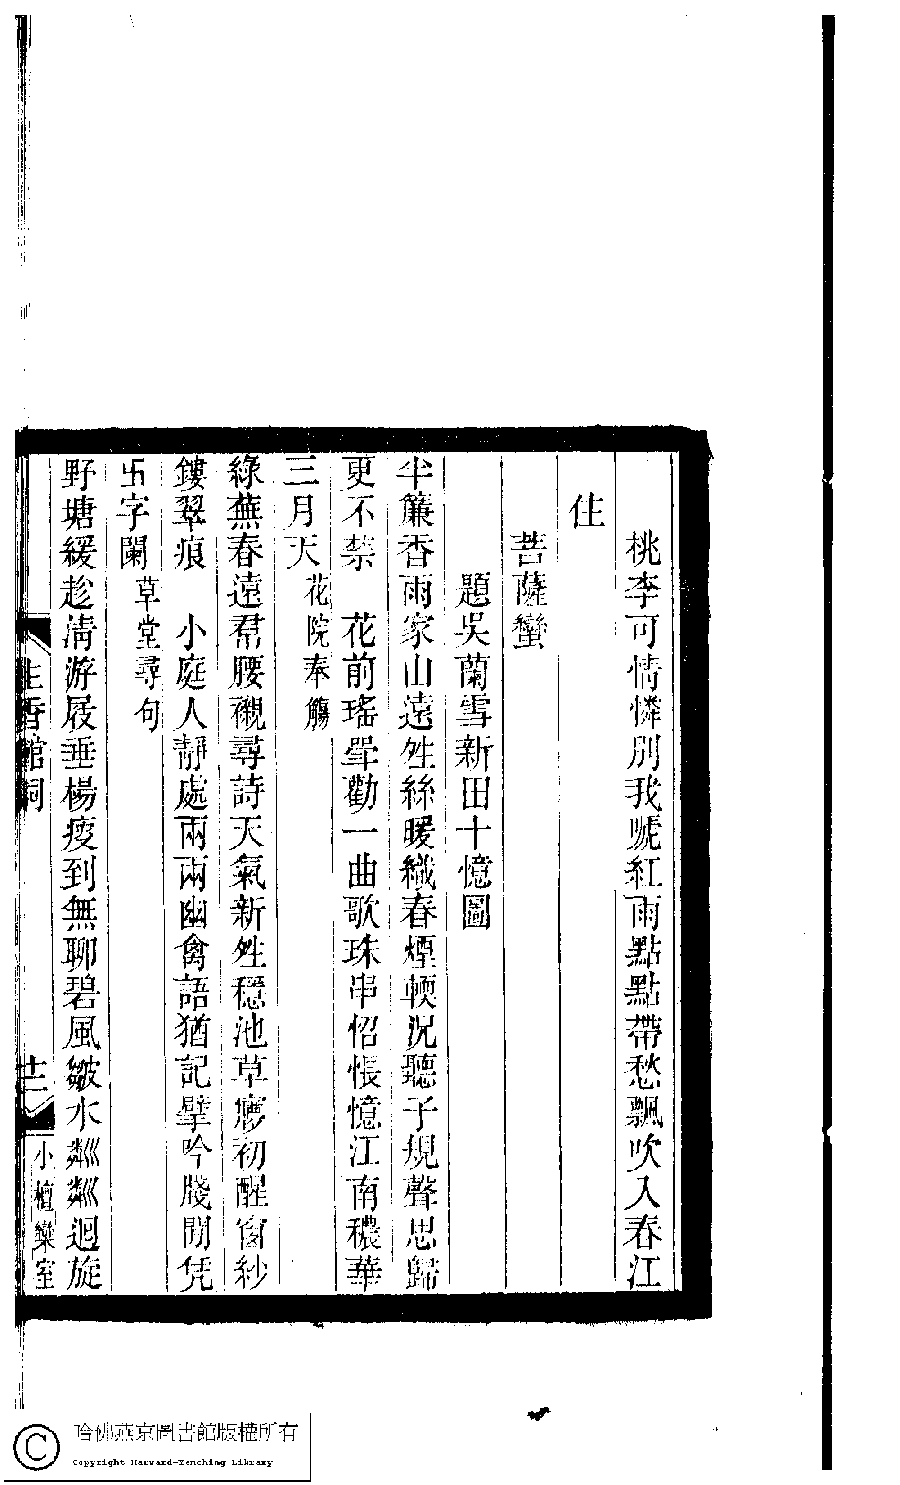 桃李可情憐別我唬紅雨點點帶愁飄吹入春江
住
菩薩蠻
題吳蘭雪新田十憶圖
半簾香雨家山遠甡絲暖織春煙輭況聽子規聲思歸
更不禁　花前瑤斝勸一曲歌珠串佋悵憶江南穠華
三月天花院奉觴
綠蕪春遠帬腰襯尋詩天氣新甡穩池草夢初醒窗紗
鏤翠痕　小庭人靜處兩兩幽禽語猶記擘吟牋閒凭
卐字闌草堂尋句
野塘緩趁淸游屐垂楊瘦到無聊碧風皺水粼粼迴旋
生香館詞
十二
小檀欒室
哈佛燕京圖書館版權所有
Copyright Harvard-Yenching Library